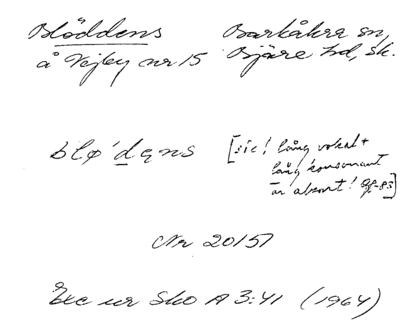 Blöddens Barkåkra sn,
å Vejby nr 15 Bjäre hd, Sk.
blø'dęns [sic! lång vokal +
lång konsonant
är absurt! GF-83]
Nr 20151
Exc ur Sko A 3:41 (1964)